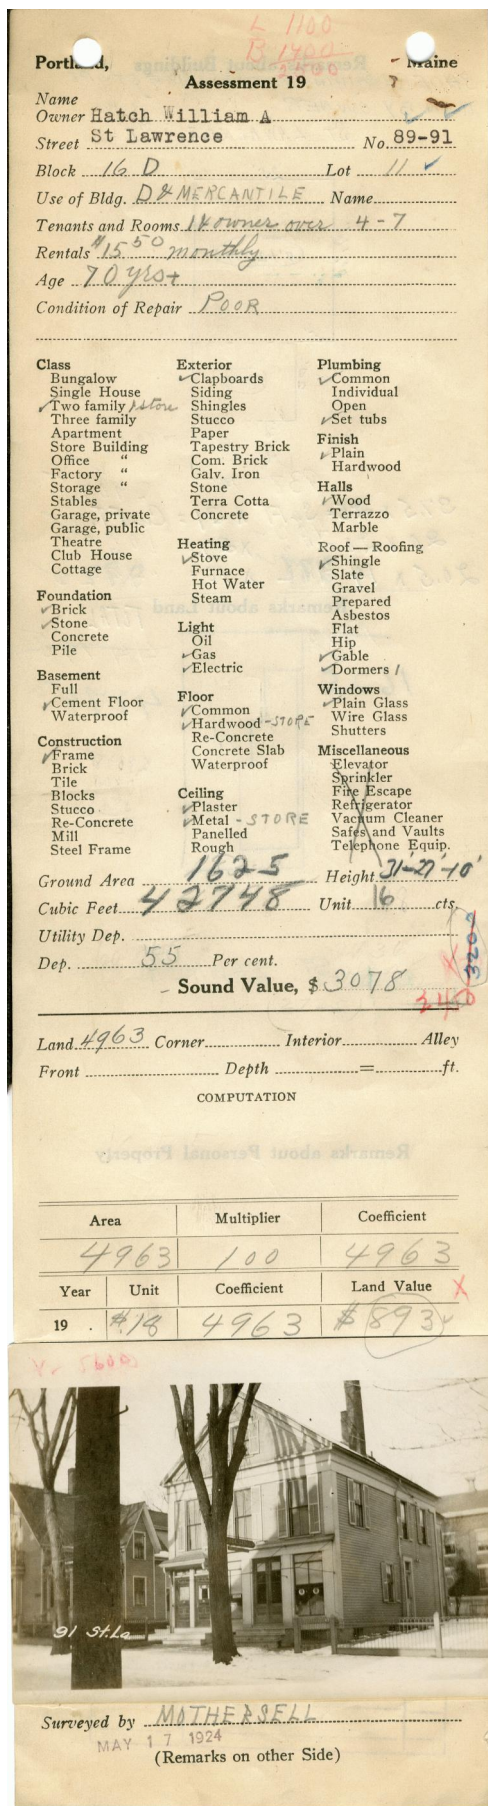 L 1100
B 1400
2500
Portland, Maine
Assessment 19
Name
Owner Hatch William A
Street St Lawrence No. 89-91
Block 16 D Lot 11
Use of Bldg. D & MERCANTILE Name
Tenants and Rooms 1 & owner over 4-7
Rentals $15.50 monthly
Age 70 yrs+
Condition of Repair POOR
Class
Bungalow
Single House
✓Two family / store
Three family
Apartment
Store Building
Office "
Factory "
Storage "
Stables
Garage, private
Garage, public
Theatre
Club House
Cottage
Foundation
✓Brick
✓Stone
Concrete
Pile
Basement
Full
✓Cement Floor
Waterproof
Construction
✓Frame
Brick
Tile
Blocks
Stucco
Re-Concrete
Mill
Steel Frame
Exterior
✓Clapboards
Siding
Shingles
Stucco
Paper
Tapestry Brick
Com. Brick
Galv. Iron
Stone
Terra Cotta
Concrete
Heating
✓Stove
Furnace
Hot Water
Steam
Light
Oil
✓Gas
✓Electric
Floor
✓Common
✓Hardwood - STORE
Re-Concrete
Concrete Slab
Waterproof
Ceiling
✓Plaster
✓Metal - STORE
Panelled
Rough
Plumbing
✓Common
Individual
Open
✓Set tubs
Finish
✓Plain
Hardwood
Halls
✓Wood
Terrazzo
Marble
Roof — Roofing
✓Shingle
Slate
Gravel
Prepared
Asbestos
Flat
Hip
✓Gable
✓Dormers 1
Windows
✓Plain Glass
Wire Glass
Shutters
Miscellaneous
Elevator
Sprinkler
Fire Escape
Refrigerator
Vacuum Cleaner
Safes and Vaults
Telephone Equip.
Ground Area 1625 Height 31'-27'-10'
Cubic Feet 42748 Unit 16 cts.
Utility Dep.
Dep. 55 Per cent.
3202
Sound Value, $ 3078
Land 4963 Corner Interior Alley
Front Depth = ft.
COMPUTATION
Area Multiplier Coefficient
4963 100 4963
Year Unit Coefficient Land Value X
19 . $.18 4963 $893
91 St.La
Surveyed by MOTHERSELL
MAY 17 1924
(Remarks on other Side)